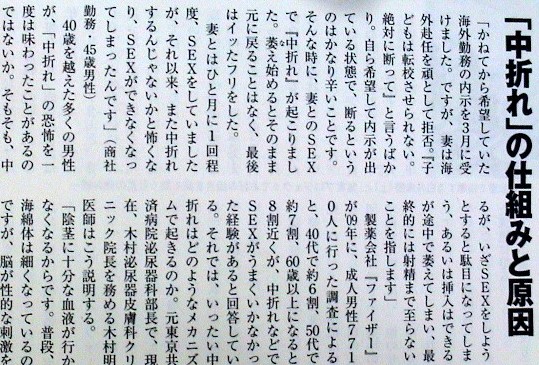 「中折れ」の仕組みと原因
「かねてから希望していた
海外勤務の内示を3月に受
けました。ですが、妻は海
外赴任を頑として拒否。『子
どもは転校させられない。
絶対に断って』と言うばか
り。自ら希望して内示が出
ている状態で、断るという
のはかなり辛いことです。
そんな時に、妻とのSEX
で『中折れ』が起こりまし
た。萎え始めるとそのまま
元に戻ることはなく、最後
はイッたフリをした。
妻とはひと月に1回程
度、SEXをしていました
が、それ以来、また中折れ
するんじゃないかと怖くな
り、SEXができなくなっ
てしまったんです」（商社
勤務・45歳男性）
40歳を越えた多くの男性
が、「中折れ」の恐怖を一
度は味わったことがあるの
ではないか。そもそも、中
るが、いざSEXをしよう
とすると駄目になってしま
う、あるいは挿入はできる
が途中で萎えてしまい、最
終的には射精まで至らない
ことを指します」
製薬会社『ファイザー』
が'09年に、成人男性771
0人に行った調査による
と、40代で約6割、50代で
約7割、60歳以上になると
8割近くが、中折れなどで
SEXがうまくいかなかっ
た経験があると回答してい
る。それでは、いったい中
折れはどのようなメカニズ
ムで起きるのか。元東京共
済病院泌尿器科部長で、現
在、木村泌尿器皮膚科クリ
ニック院長を務める木村明
医師はこう説明する。
「陰茎に十分な血液が行か
なくなるからです。普段、
海綿体は細くなっているの
ですが、脳が性的な刺激を